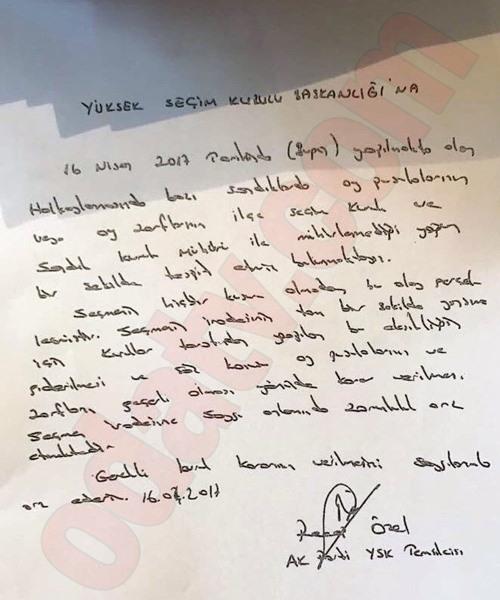 YÜKSEK SEÇİM KURULU BAŞKANLIĞI'NA
16 Nisan 2017 Tarihinde (Bugün) yapılmakta olan
Halkoylamasında bazı sandıklarda oy pusulalarının
veya oy zarflarının ilçe seçim kurulu ve
Sandık kurulu mührü ile mühürlenmediği yaygın
bir şekilde tespit etmiş bulunmaktayız.
Seçmenin hiçbir kusuru olmadan bu olay gerçek
leşmiştir. Seçmen iradesinin tam bir şekilde yansıma
için kurullar tarafından yapılan bu eksikliğin
giderilmesi ve söz konusu oy pusulalarının ve
zarfların geçerli olması yönünde karar verilmesi.
Seçmen iradesine saygı anlamında zorunluluk arz
etmektedir.
Gerekli kurul kararının verilmesini saygılarımla
arz ederim. 16.04.2017
Recep Özel
AK Parti YSK Temsilcisi
odatv.com